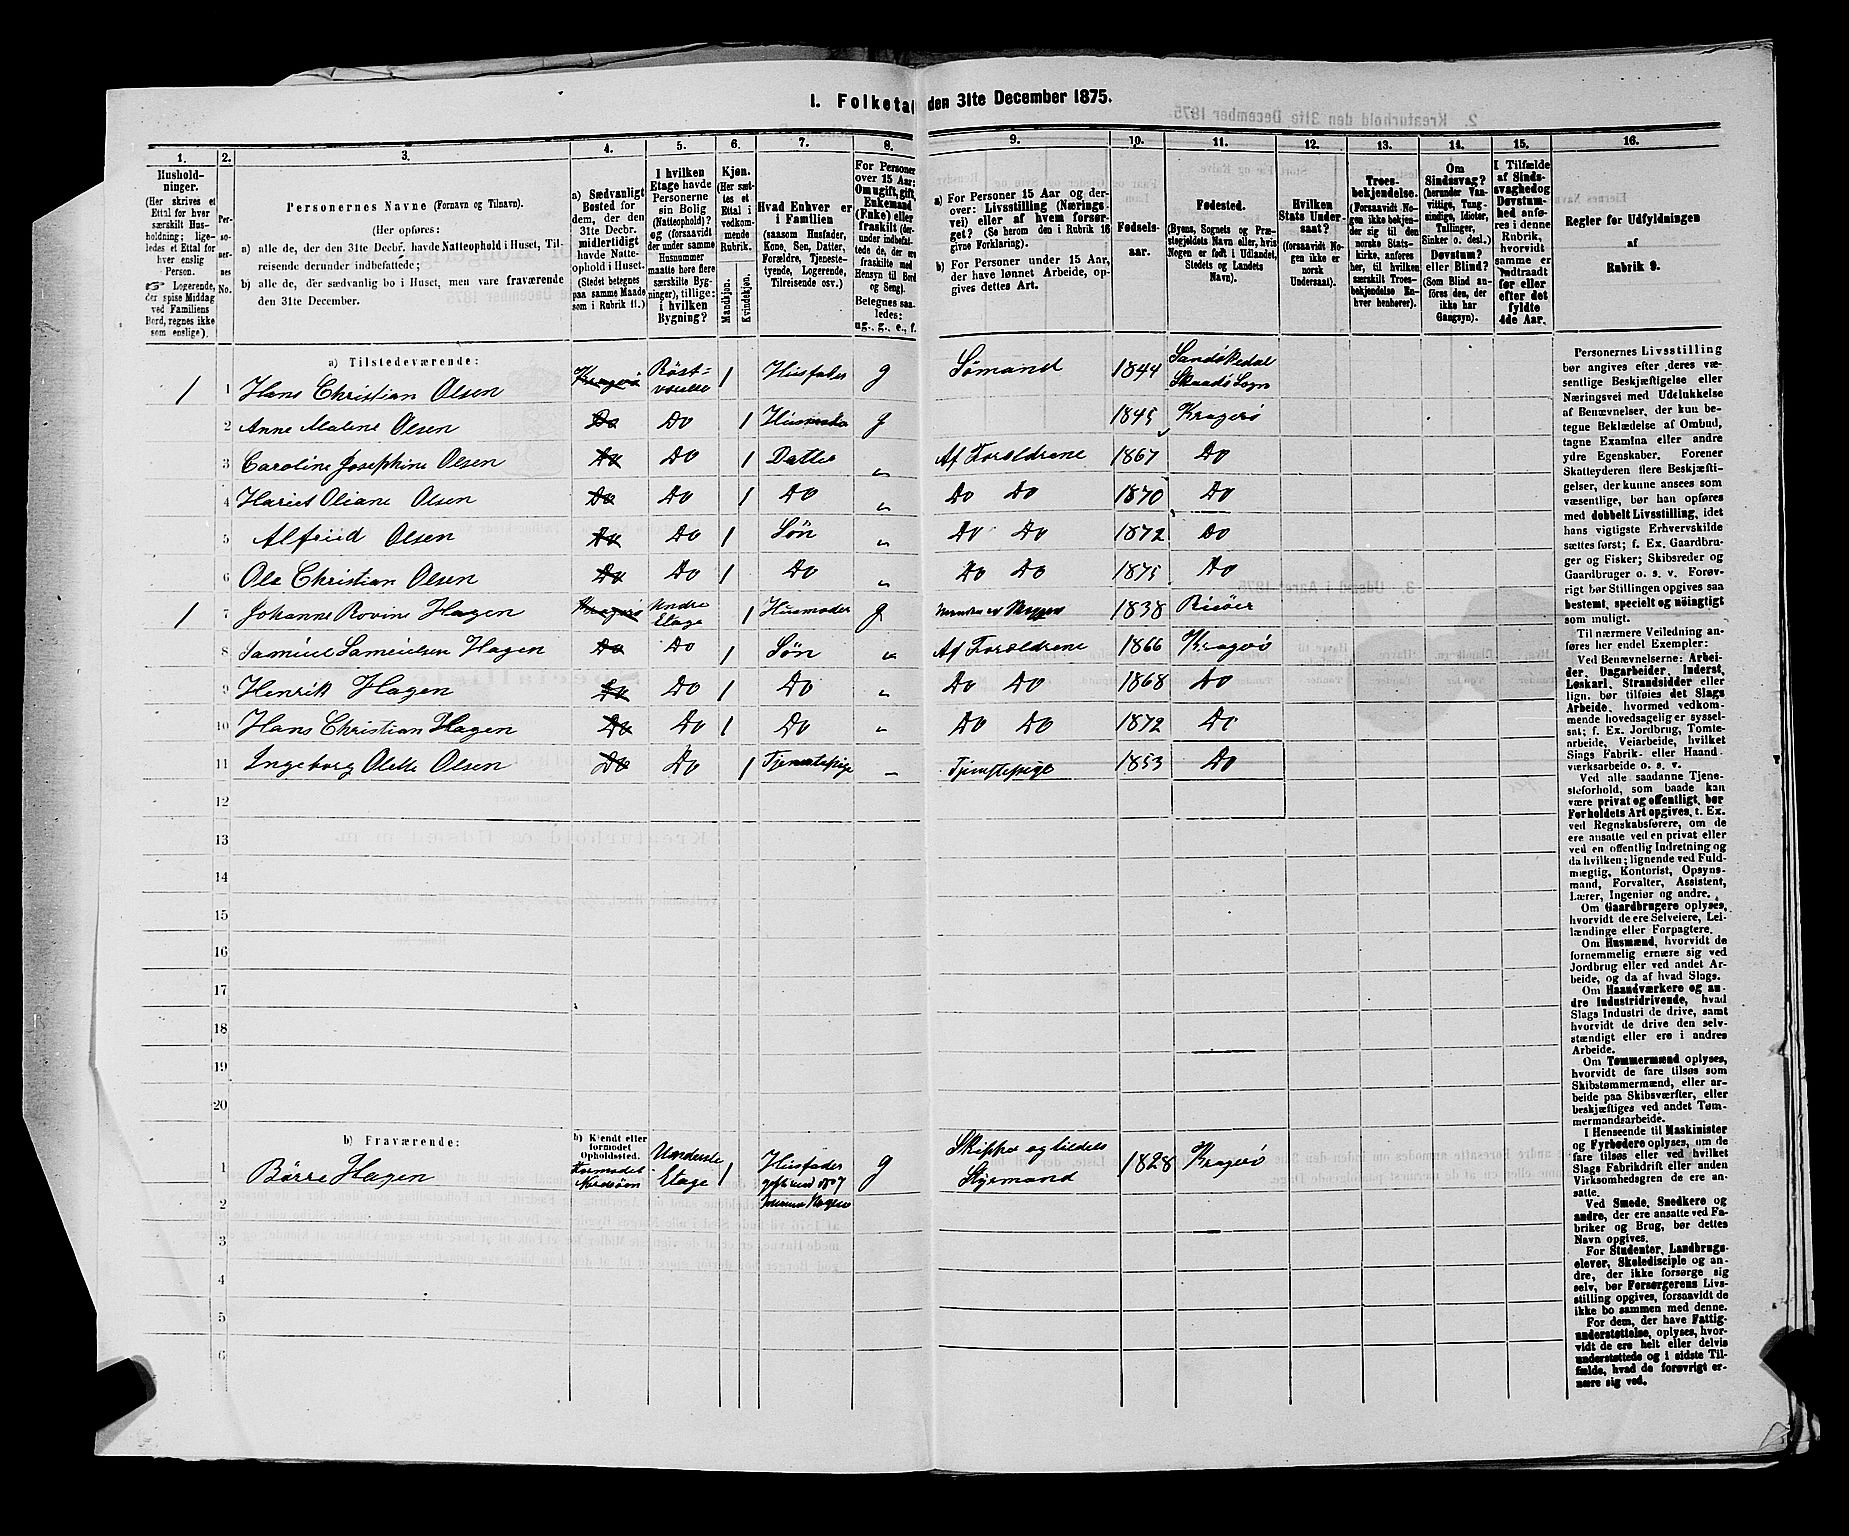 1. Folketa den 31te December 1875.
1. 2. 3. 4. 5. 6. 7. 8. 9. 10. 11. 12. 13. 14. 15. 16.
Husholdninger.
(Her skrives et Ettal for hver særskilt Husholdning; ligeledes et Ettal for hver enslig Person.
Logerende, der spise Middag ved Familiens Bord, regnes ikke som enslige).
Personernes No.
Personernes Navne (Fornavn og Tilnavn).
(Her opføres:
a) alle de, der den 31te Decbr. havde Natteophold i Huset, Tilreisende derunder indbefattede;
b) alle de, der sædvanlig bo i Huset, men vare fraværende den 31te December.
a) Sædvanligt Bosted for dem, der den 31te Decbr. midlertidigt havde Natteophold i Huset. (Stedet betegnes paa samme Maade som i Rubrik 11.)
I hvilken Etage havde Personerne sin Bolig (Natteophold)? og (forsaavidt der under samme Husnummer maatte høre flere særskilte Bygninger), tillige: i hvilken Bygning?
Kjøn. (Her sættes et Ettal i vedkommende Rubrik.
Mandkjøn. Kvindekjøn.
Hvad Enhver er i Familien
(saasom Husfader, Kone, Søn, Datter, Forældre, Tjenestetyende, Logerende, Tilreisende osv.)
For Personer over 15 Aar: Om ugift, gift, Enkemand (Enke) eller fraskilt
Betegnes saaledes: ug., g., e., f.
a) For Personer 15 Aar og derover: Livsstilling (Næringsvei) eller af hvem forsørget? (Se herom den i Rubrik 16 givne Forklaring).
b) For Personer under 15 Aar, der have lønnet Arbeide, opgives dettes Art.
Fødselsaar.
Fødested.
(Byens, Sognets og Præstegjeldets Navn eller, hvis Nogen er født i Udlandet, Stedets og Landets Navn).
Hvilken Stats Undersaat?
(forsaavidt Nogen ikke er norsk Undersaat).
Troesbekjendelse.
(Forsaavidt Nogen ikke bekjender sig til den norske Statskirke, anføres her, til hvilken særskilt Troesbekjendelse Enhver henhører).
Om Sindssvag? (herunder Vanvittige, Tungsindige, Idioter, Tullinger, Sinker o. desl.) Døvstum? eller Blind? (Som Blind anføres den, der ikke har Gangsyn).
I Tilfælde af Sindssvaghed og Døvstumhed anføres i denne Rubrik, hvorvidt samme er indtraadt før eller efter det fyldte 4de Aar.
Regler for Udfyldningen af Rubrik 9.
a) Tilstedeværende:
1 1 Hans Christian Olsen Kragerö 1 Husfader g Sømand 1844 Skaadö Sogn
2 Anne Malene Olsen Do Do 1 g 1845 Kragerö
3 Caroline Josephine Olsen Do Do 1 Datter „ Af Foreldrene 1867 Do
4 Hariet Oliane Olsen Do Do 1 Do „ Do Do 1870 Do
5 Alfried Olsen Do Do 1 Søn „ Do Do 1872 Do
6 Ole Christian Olsen Do Do 1 Do „ Do Do 1875 Do
1 7 Johanne Rovine Hagen Kragerö Andre Etage 1 Husmoder g 1838 Risöer
8 Samuel Samuelsen Hagen Do Do 1 Søn „ Af Foreldrene 1866 Kragerö
9 Henrik Hagen Do Do 1 Do „ Do Do 1868 Do
10 Hans Christian Hagen Do Do 1 Do „ Do Do 1872 Do
11 Ingeborg Olette Olsen Do Do 1 Tjenestepige „ Tjenstepige 1853 Do
12
13
14
15
16
17
18
19
20
b) Fraværende: b) Kjendt eller formodet Opholdssted.
1 Börre Hagen Formodet Nordsöen Etage 1 Husfader g Skipper og tildels Styrmand 1828 Kragerö
2
3
4
5
6
Personernes Livsstilling
bør angives efter deres væsentlige Beskjæftigelse eller
Næringsvei med Udelukkelse
af Benævnelser, der kun betegne Beklædelse af Ombud,
tagne Examina eller andre
ydre Egenskaber. Forener
Skatteyderen flere Beskjæftigelser, der kunne ansees som
væsentlige, bør han opføres
med dobbelt Livsstilling, idet
hans vigtigste Erhvervskilde
sættes først; f. Ex. Gaardbruger og Fisker; Skibsreder og
Gaardbruger o. s. v. Forøvrigt bør Stillingen opgives saa
bestemt, specielt og nøiagtigt
som muligt.
Til nærmere Veiledning anføres her endel Exempler:
Ved Benævnelserne: Arbeider, Dagarbeider, Inderst,
Løskarl, Strandsidder eller
lign. bør tilføies det Slags
Arbeide, hvormed vedkommende hovedsagelig er sysselsat; f. Ex. Jordbrug, Tomtearbeide, Veiarbeide, hvilket
Slags Fabrik- eller Haandværksarbeide o. s. v.
Ved alle saadanne Tjenesteforhold, som baade kan
være privat og offentligt, bør
Forholdets Art opgives, t. Ex.
ved Regnskabsførere, om de
ere ansatte ved en privat eller
ved en offentlig Indretning og
da hvilken; lignende ved Fuldmægtig, Kontorist, Opsynsmand, Forvalter, Assistent,
Lærer, Ingeniør og andre.
Om Gaardbrugere oplyses,
hvorvidt de ere Selveiere, Leilændinge eller Forpagtere.
Om Husmænd, hvorvidt de
fornemmelig ernære sig ved
Jordbrug eller ved andet Arbeide, og da af hvad Slags.
Om Haandværkere og andre Industridrivende, hvad
Slags Industri de drive, samt
hvorvidt de drive den selvstændigt eller ere i andres
Arbeide.
Om Tømmermænd oplyses,
hvorvidt de fare tilsøs som
Skibstømmermænd, eller arbeide paa Skibsværfter, eller
beskjæftiges ved andet Tømmermandsarbeide.
I Henseende til Maskinister
og Fyrbødere oplyses, um de
fare tilsøs eller ved hvilket
Slags Fabrikdrift eller anden
Virksomhedsgren de ere ansatte.
Ved Smede, Snedkere og
andre, der ere ansatte ved Fabriker og Brug, bør dettes
Navn opgives.
For Studenter, Landbrugselever, Skoledisciple og andre, der ikke forsørge sig
selv, bør Forsørgerens Livsstilling opgives, forsaavidt de
ikke bo sammen med denne.
For dem, der have Fattigunderstøttelse, oplyses, hvorvidt de ere helt eller delvis
understøttede og i sidste Tilfælde, hvad de forøvrigt ernære sig ved.